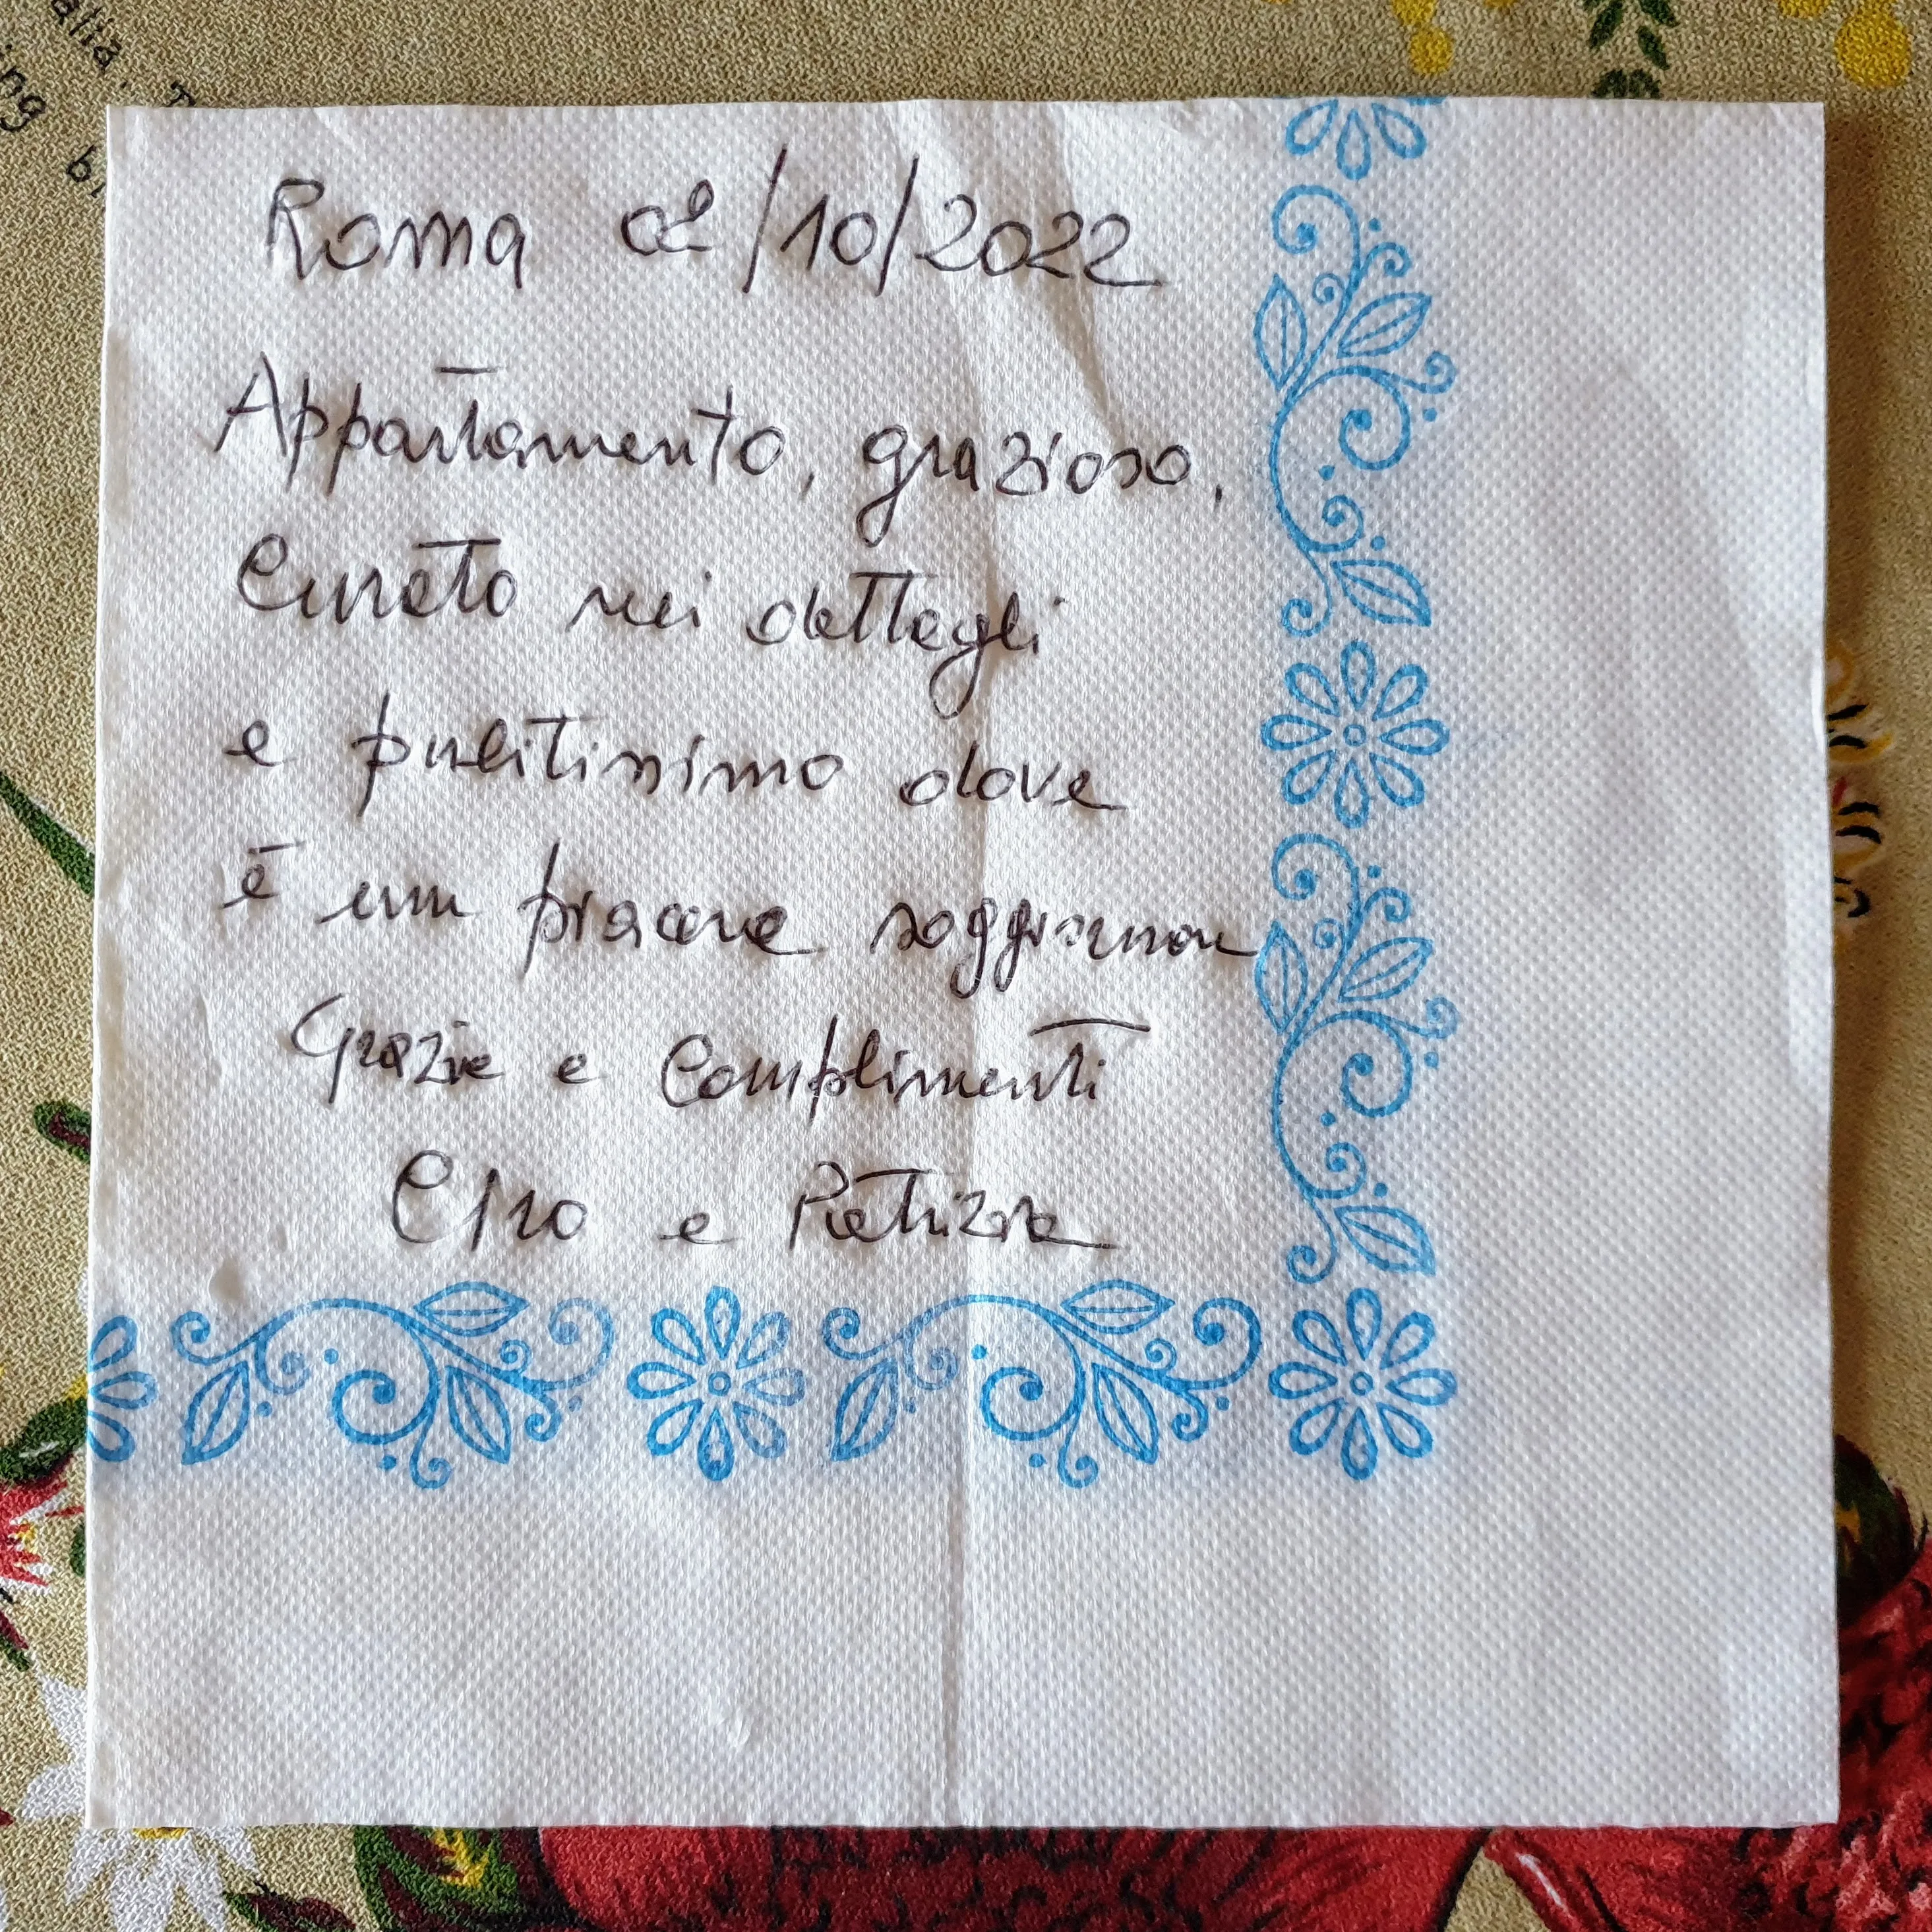 alia.
ing
Roma 02/10/2022
Appartamento, grazioso,
Curato nei dettagli
e pulitissimo dove
è un piacere soggiornare
Grazie e complimenti
Ciro e Patrizia